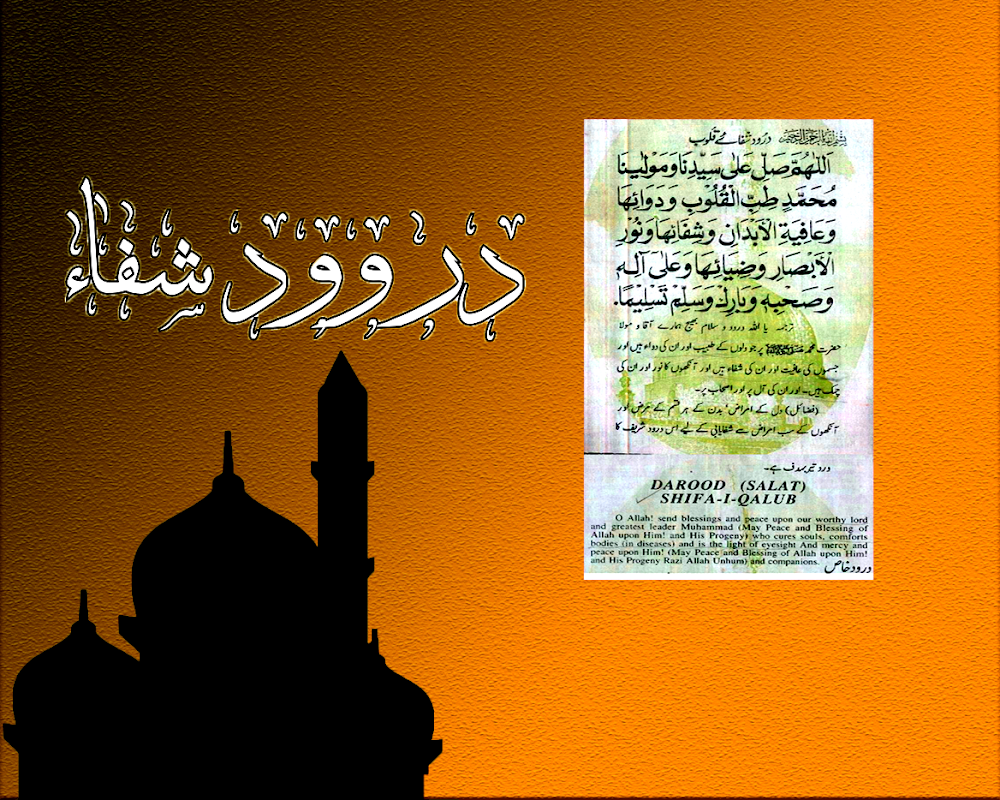 دروود شفاء
بسم الله الرحمن الرحيم درود شفائے قلوب
اَللّٰهُمَّ صَلِّ عَلٰى سَيِّدِنَا وَمَوْلٰينَا
مُحَمَّدٍ طِبِّ الْقُلُوْبِ وَدَوَائِهَا
وَعَافِيَةِ الْاَبْدَانِ وَشِفَائِهَا وَنُوْرِ
الْاَبْصَارِ وَضِيَائِهَا وَعَلٰى اٰلِهٖ
وَصَحْبِهٖ وَبَارِكْ وَسَلِّمْ تَسْلِيْمًا.
ترجمہ یا اللہ درود و سلام بھیج ہمارے آقا و مولا
حضرت محمد پر جو دلوں کے طبیب اور ان کی دوا ہیں اور
جسموں کی عافیت اور ان کی شفاء ہیں اور آنکھوں کا نور اور ان کی
چمک ہیں۔ اور ان کی آل پر اور اصحاب پر۔
(فضائل) دل کے امراض' بدن کے ہر قسم کے مرض اور
آنکھوں کے سب امراض سے شفایابی کے لیے اس درود شریف کا
ورد تیر بہدف ہے۔
DAROOD (SALAT)
SHIFA-I-QALUB
O Allah! send blessings and peace upon our worthy lord
and greatest leader Muhammad (May Peace and Blessing of
Allah upon Him! and His Progeny) who cures souls, comforts
bodies (in diseases) and is the light of eyesight And mercy and
peace upon Him! (May Peace and Blessing of Allah upon Him!
and His Progeny Razi Allah Unhum) and companions.
درود خاص